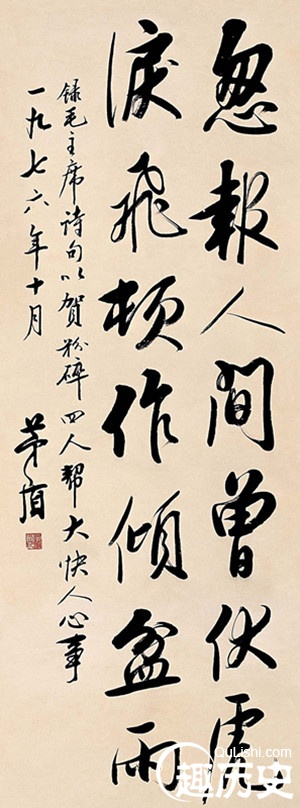 怱報人間曾伏虎
淚飛頓作傾盆雨
録毛主席詩句以賀粉碎四人幫大快人心事
一九七六年十月
茅盾
QuLishi.com
趣历史